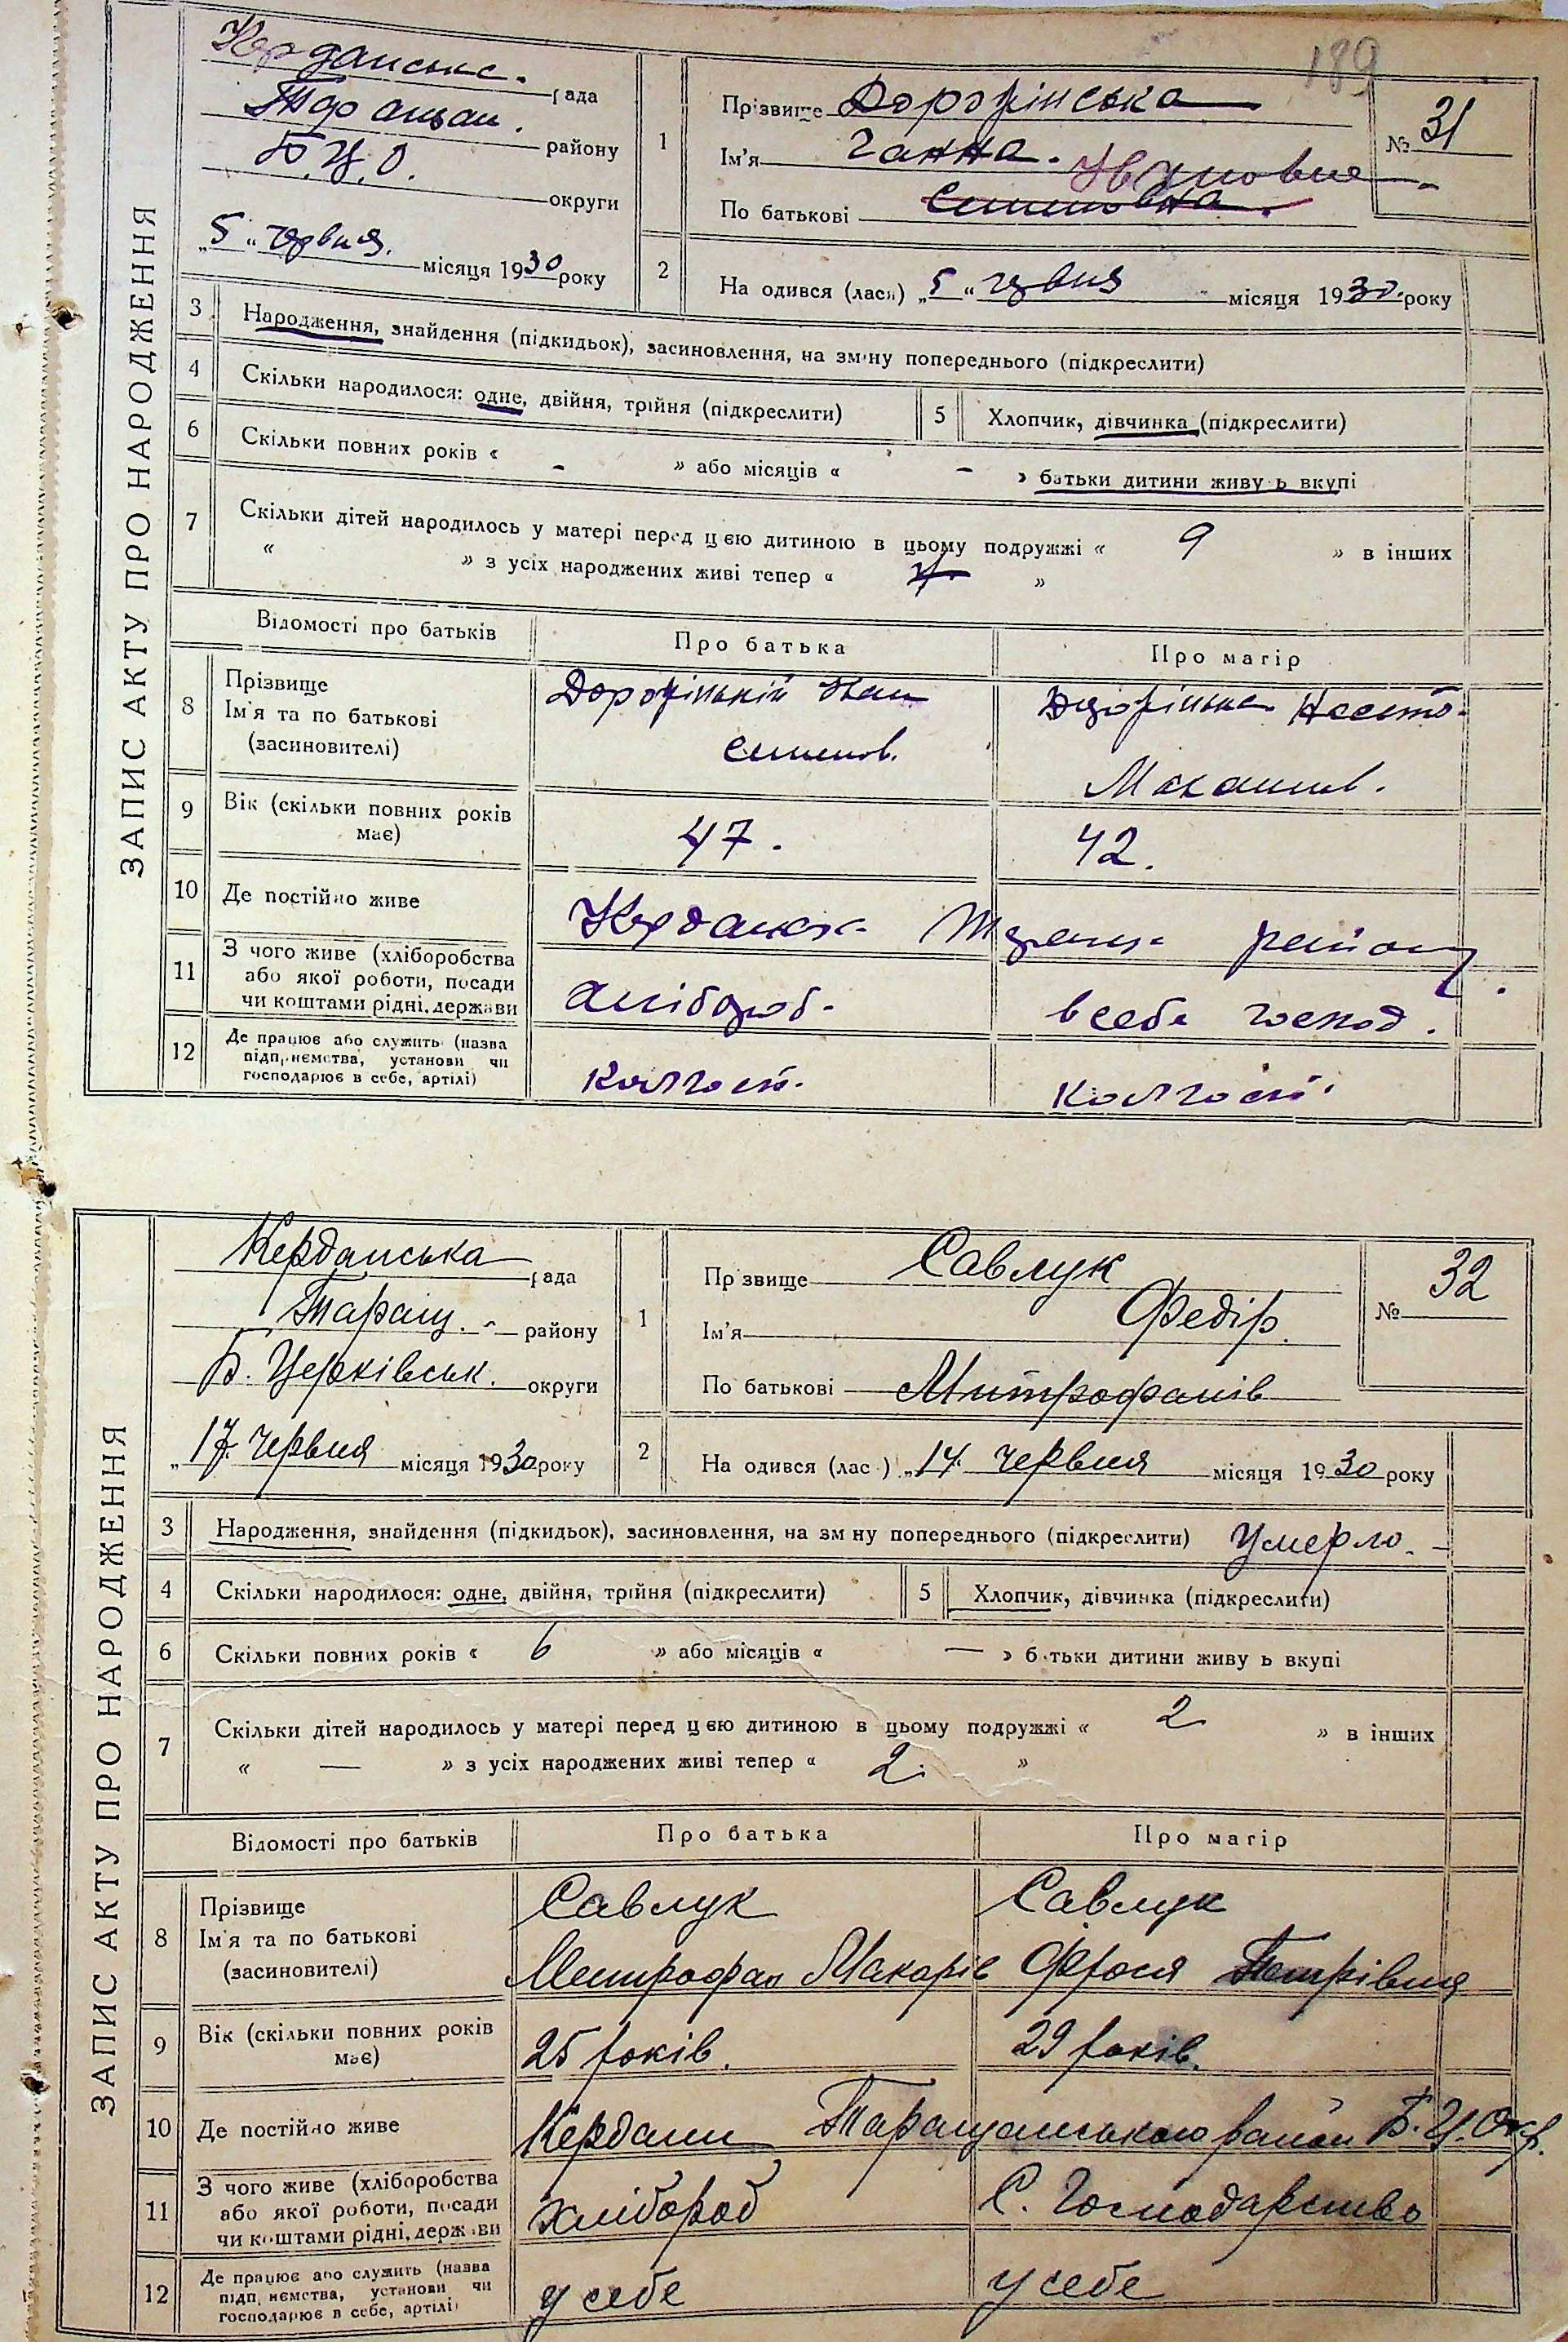 189
ЗАПИС АКТУ ПРО НАРОДЖЕННЯ
Керданське. рада
району
Б.Ц.О. округи
„5“ червня. місяця 1930 року
1
Прізвище Дорофінська
Ім'я Ганна. Івановна
По батькові Семеновна.
№ 31
2 На одився (лася) „5“ червня місяця 1930 року
3 Народження, знайдення (підкидьок), засиновлення, на зміну попереднього (підкреслити)
4 Скільки народилося: одне, двійня, трійня (підкреслити) 5 Хлопчик, дівчинка (підкреслити)
6 Скільки повних років « - » або місяців « - » батьки дитини живу ь вкупі
7 Скільки дітей народилось у матері перед цією дитиною в цьому подружжі « 9 » в інших
« » з усіх народжених живі тепер « »
Відомості про батьків Про батька Про матір
8 Прізвище Ім'я та по батькові (засиновителі)
Дорофінський Іван
Семенов.
9 Вік (скільки повних років має) 47. 42.
10 Де постійно живе району
11 З чого живе (хліборобства або якої роботи, посади чи коштами рідні, держави
хлібороб. в себе господ.
12 Де працює або служить (назва підприємства, установи чи господарює в себе, артілі)
колгосп. колгосп.
ЗАПИС АКТУ ПРО НАРОДЖЕННЯ
Керданська рада
Таращ. району
Б. Церківськ. округи
„17. червня місяця 1930 року
1
Пр звище Савлук
Ім'я Федір.
По батькові Митрофанів
№ 32
2 На одився (лас ) „14. червня місяця 1930 року
3 Народження, знайдення (підкидьок), засиновлення, на зм ну попереднього (підкреслити) Умерло.
4 Скільки народилося: одне, двійня, трійня (підкреслити) 5 Хлопчик, дівчинка (підкреслити)
6 Скільки повних років « 6 » або місяців « — » б тьки дитини живу ь вкупі
7 Скільки дітей народилось у матері перед цією дитиною в цьому подружжі « 2 » в інших
« — » з усіх народжених живі тепер « 2. »
Відомості про батьків Про батька Про матір
8 Прізвище Ім'я та по батькові (засиновителі)
Савлук Савлук
Митрофан Макарів Фрося Петрівна
9 Вік (скільки повних років має) 25 років. 29 років.
10 Де постійно живе Кердани Таращанського район Б.Ц. Окр.
11 З чого живе (хліборобства або якої роботи, посади чи коштами рідні, держави
хлібороб С. Господарство
12 Де працює або служить (назва підприємства, установи чи господарює в себе, артілі)
у себе у себе